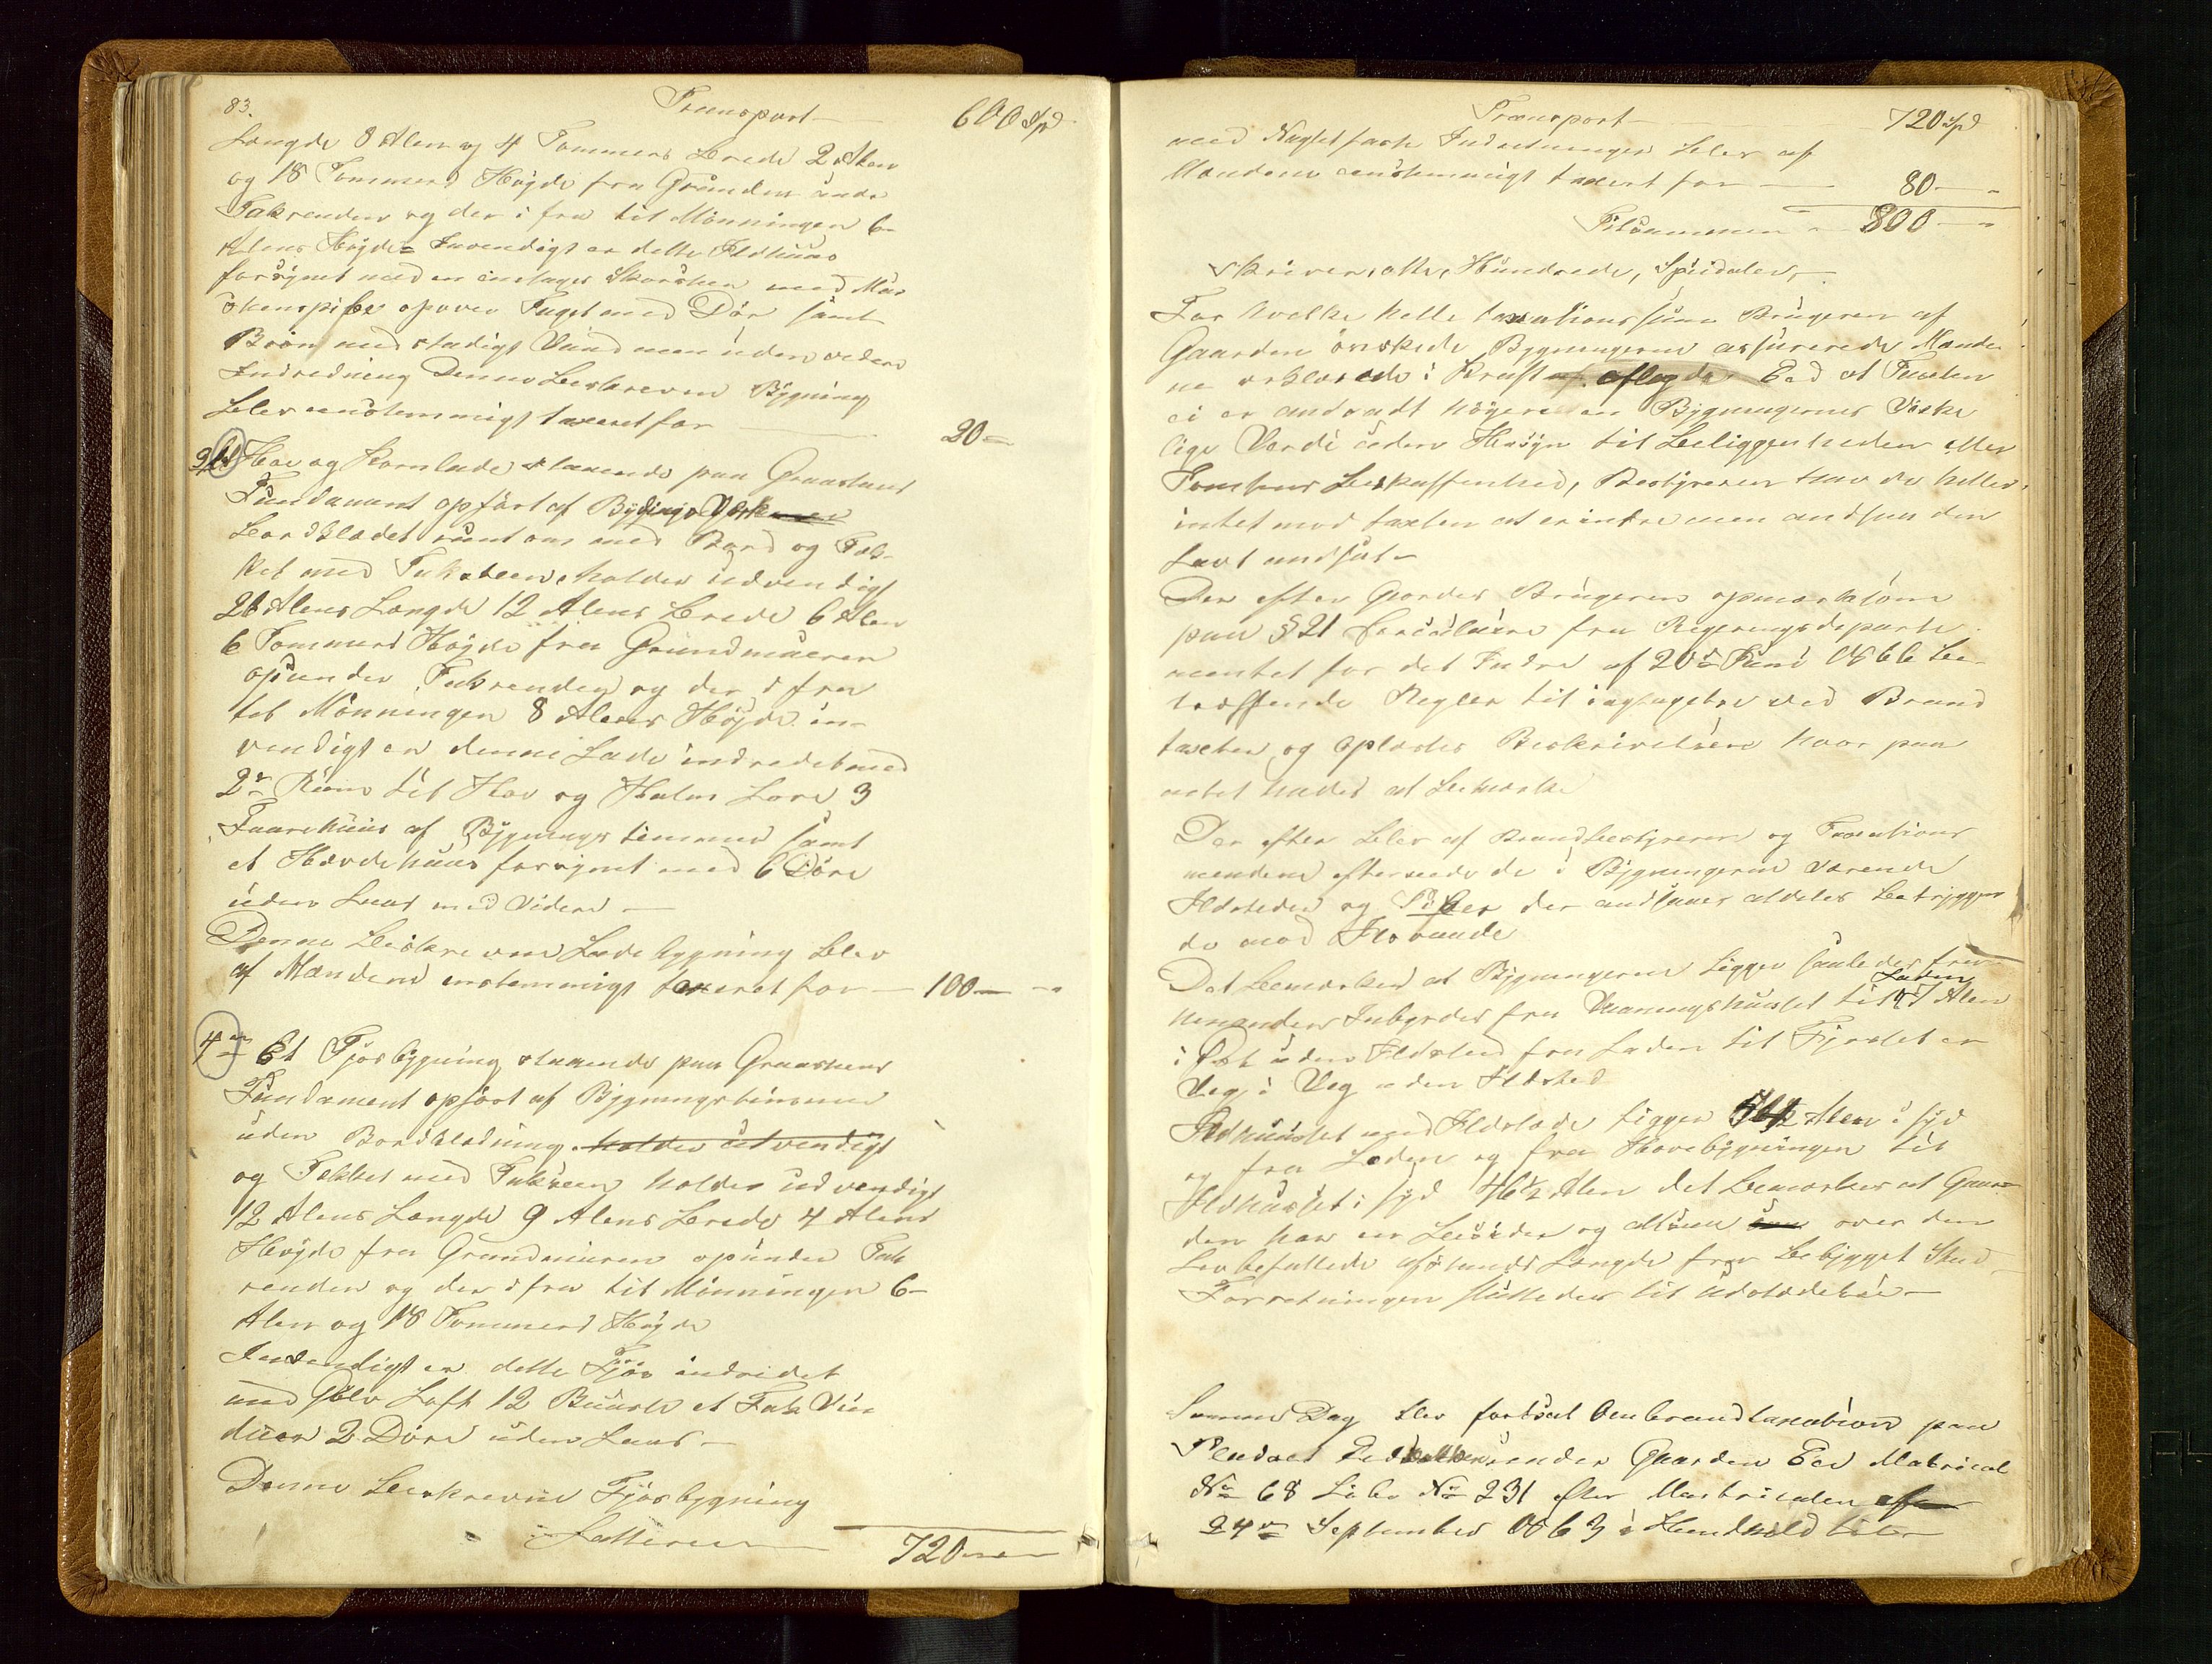 83.
Transport — 600 Spd
Længde 8 Alen og 4 Tommers brede 2 Alen
og 18 Tommers Høyde fra Grunden unde
Takrenden og der i fra til Mønningen 6
Alens Høyde Invendigt er dette Ildhuus
forsynet med en Skorsten med
opover Taget med Dør samt
Brøn med stadigt Vand men uden videre
Indredning Denne beskreven Bygning
blev enstemmigt taxeret for — 20 —
3 Høe og Kornlade staaende paa Graasteens
Fundament opført af Bygnings
bordklædet rundt om med Bord og Tæk-
ket med Taksteen, holder udvendigt
26 Alens Længde 12 Alens brede 6 Alen
6 Tommers Høyde fra Grundmueren
opunder Takrenden og der i fra
til Mønningen 8 Alens Høyde in-
vendigt er denne Lade indredet med
2de Rum til Høe og Halm Love 3
Faarehuus af Bygnings tømmer samt
et Hævdehuus forsynet med 6 Døre
uden Laas med videre —
Denne beskrevne Ladebygning blev
af Mændene enstemmigt taxeret for — 100 — "
4de Et Fjøsbygning staaende paa Graasteens
Fundament opført af Bygningstømmer
uden Bordklædning. holder udvendigt
og Tækket med Taksteen holder udvendigt
12 Alens Længde 9 Alens brede 4 Alens
Høyde fra Grundmuren opunder Tak
renden og der i fra til Mønningen 6
Alen og 18 Tommers Høyde
Invendigt er dette Fjøs indredet
med Gulv Loft 12 Baase et Tak Vin
duer 2 Døre uden Laas —
Denne beskrevne Fjøsbygning
Latterer — 720 —
Transport — 720 Spd
med Nagelfaste Indretninger blev af
Mændene enstemmigt taxert for — 80 — "
Tilsammen — 800 — "
skriver, otte, Hundrede, Speidaler, —
For hvilke hele taxationssum Brugeren af
Gaarden ønskede Bygningerne assurerede Mænde
ne erklærede i Kraft af aflagde Eed at Taxten
ei er andsadt høyere en Bygningernes Virke
lige Værdi uden Hensyn til Beliggenheden eller
Tomtens beskaffenhed, Bestyreren har der heller
intet mod taxten at erindre men andsaa den
Lavt andsat —
Der efter Gjordes Brugeren opmærksom
paa §21 Circulære fra Regjeringsdeparte
mentet for det Indre af 20de Juni 1866 be-
træffende Regler til iagtagelse ved Brand
taxter, og oplæstes Beskrivelsen hvor paa
intet hades at bemærke
Der efter blev af Brandbestyreren og Taxations
mændene efterseede de i Bygningerne værende
Ildsteder og Piber der andsaaes aldeles betryggen
de mod Ildsvaade
Det bemærkes at Bygningerne ligger saaledes fra
hinanden Inbyrdes fra Vaaningshuuset til Laden 7 Alen
i Øst uden Ildsted fra Laden til Fjøset er
Væg i Væg uden Ildsted
Ildhuuset med Ildstæde ligger Alen i syd
og fra Laden og fra Hovebygningen til
Ildhuuset i syd 46½ Alen det bemærkes at Gaar
den har en og over den
Lovbefallede afstands Længde fra bebygget Sted
Forretningen sluttedes til Udstædelse —
Samme Dag blev fortsat Brandtaxation paa
Pladset under Gaarden Eee Matricul
No 68 Løbe No 231 efter Matriculen
24de September 1863 i